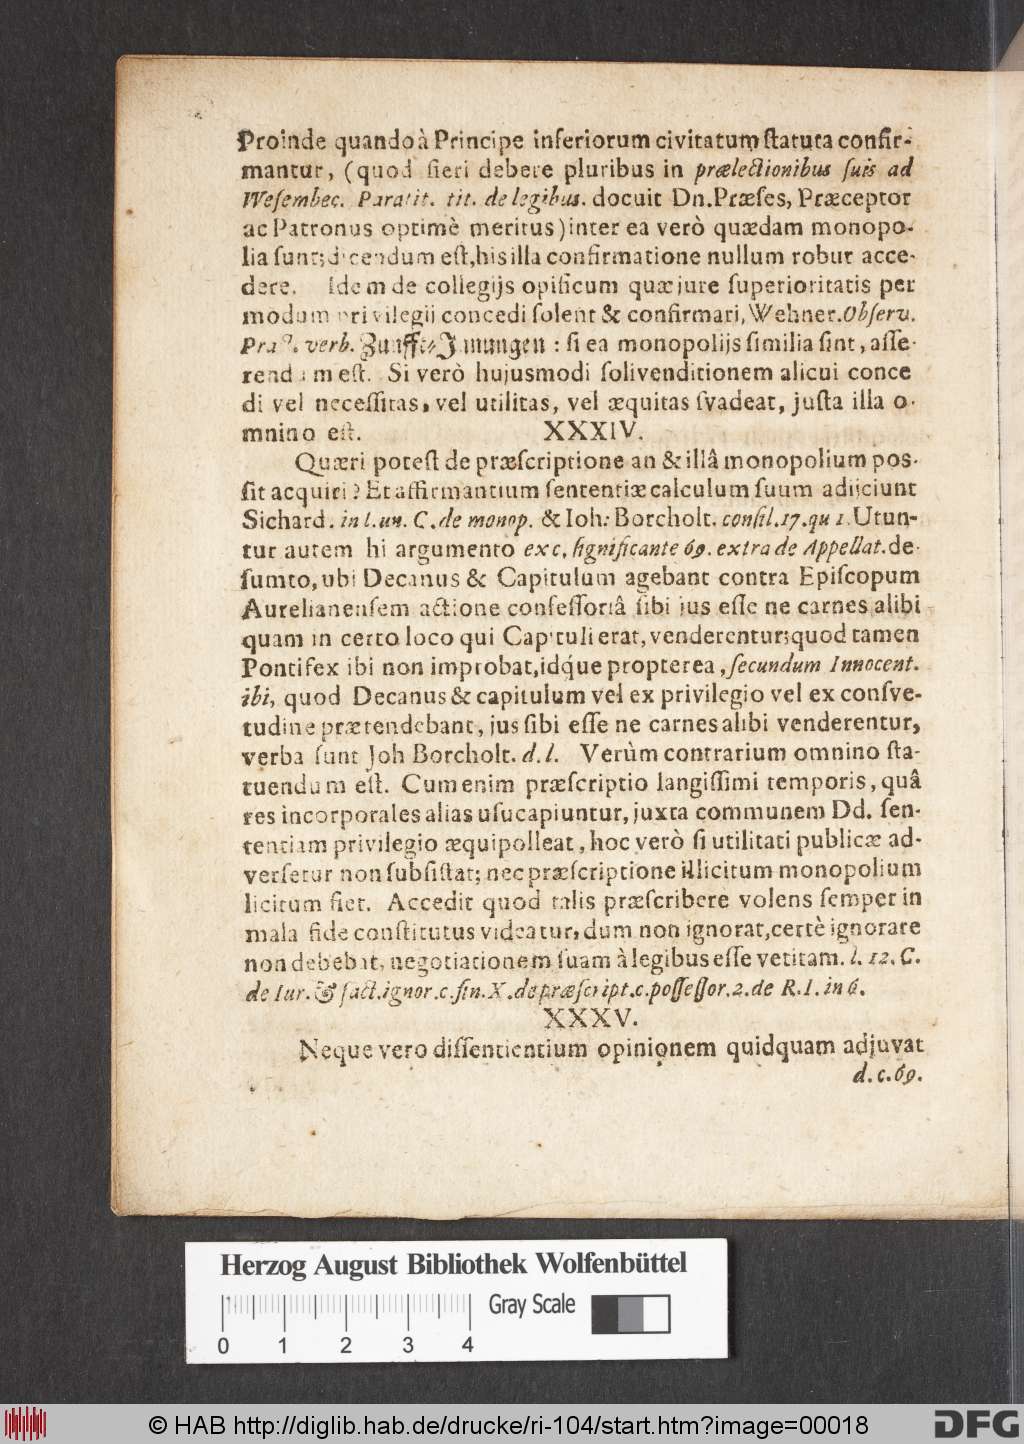 Proinde quando à Principe inferiorum civitatum ſtatuta confir-
mantur, (quod fieri debere pluribus in prælectionibus ſuis ad
Weſembec. Paratit. tit. de legibus. docuit Dn. Præſes, Præceptor
ac Patronus optimè meritus) inter ea verò quædam monopo-
lia ſunt; dicendum eſt, his illa confirmatione nullum robur acce-
dere. Idem de collegijs opificum quæ jure ſuperioritatis per
modum privilegii concedi ſolent & confirmari, Wehner. Obſerv.
Pract. verb. Zunfft/Innungen : ſi ea monopolijs ſimilia ſint, aſſe-
rendum eſt. Si verò hujusmodi ſolivenditionem alicui conce
di vel neceſſitas, vel utilitas, vel æquitas ſvadeat, juſta illa o-
mnino eſt. XXXIV.
Quæri poteſt de præſcriptione an & illâ monopolium pos-
ſit acquiri? Et affirmantium ſententiæ calculum ſuum adijciunt
Sichard. in l. un. C. de monop. & Ioh: Borcholt. conſil. 17. qu 1. Utun-
tur autem hi argumento ex c. ſignificante 69. extra de Appellat. de-
ſumto, ubi Decanus & Capitulum agebant contra Epiſcopum
Aurelianenſem actione confeſſoriâ ſibi ius eſſe ne carnes alibi
quam in certo loco qui Capituli erat, venderentur; quod tamen
Pontifex ibi non improbat, idq́ue propterea, ſecundum Innocent.
ibi, quod Decanus & capitulum vel ex privilegio vel ex conſve-
tudine prætendebant, jus ſibi eſſe ne carnes alibi venderentur,
verba ſunt Joh Borcholt. d. l. Verùm contrarium omnino ſta-
tuendum eſt. Cum enim præſcriptio langiſſimi temporis, quâ
res incorporales alias uſucapiuntur, juxta communem Dd. ſen-
tentiam privilegio æquipolleat, hoc verò ſi utilitati publicæ ad-
verſetur non ſubſiſtat; nec præſcriptione illicitum monopolium
licitum fiet. Accedit quod talis præſcribere volens ſemper in
mala fide conſtitutus videatur, dum non ignorat, certè ignorare
non debebat, negotiationem ſuam à legibus eſſe vetitam. l. 12. C.
de Iur. & fact. ignor. c. fin. X. de præſcript. c. poſſeſſor. 2. de R. I. in 6.
XXXV.
Neque vero diſſentientium opinionem quidquam adjuvat
d. c. 69.
Herzog August Bibliothek Wolfenbüttel
0 1 2 3 4 Gray Scale
© HAB http://diglib.hab.de/drucke/ri-104/start.htm?image=00018
DFG